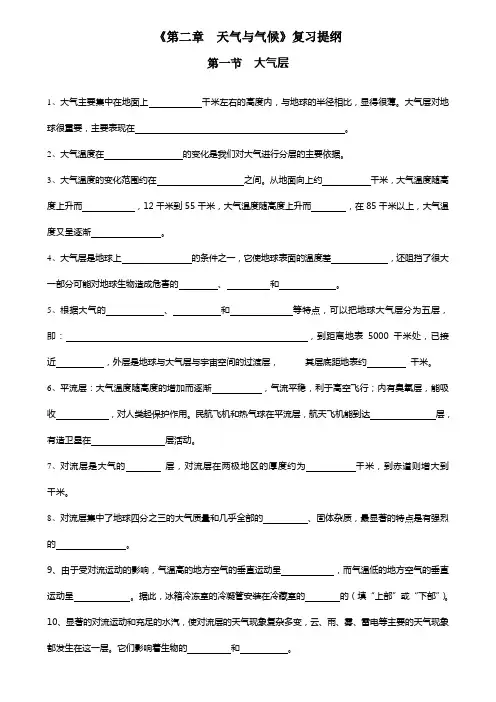 《第二章　天气与气候》复习提纲
第一节　大气层
1、大气主要集中在地面上＿＿＿＿千米左右的高度内，与地球的半径相比，显得很薄。大气层对地
球很重要，主要表现在＿＿＿＿＿＿＿＿＿＿＿＿＿＿＿＿。
2、大气温度在＿＿＿＿＿＿的变化是我们对大气进行分层的主要依据。
3、大气温度的变化范围约在＿＿＿＿＿＿＿之间。从地面向上约＿＿＿＿千米，大气温度随高
度上升而＿＿＿＿，12千米到55千米，大气温度随高度上升而＿＿＿，在85千米以上，大气温
度又呈逐渐＿＿＿＿＿。
4、大气层是地球上＿＿＿＿＿的条件之一，它使地球表面的温度差＿＿＿＿，还阻挡了很大
一部分可能对地球生物造成危害的＿＿＿、＿＿＿和＿＿＿＿。
5、根据大气的＿＿＿＿、＿＿＿和＿＿＿＿等特点，可以把地球大气层分为五层，
即：＿＿＿＿＿＿＿＿＿＿＿＿＿＿＿＿＿＿，到距离地表5000千米处，已接
近＿＿＿＿，外层是地球与大气层与宇宙空间的过渡层，　　其层底距地表约＿＿＿千米。
6、平流层：大气温度随高度的增加而逐渐＿＿＿＿，气流平稳，利于高空飞行；内有臭氧层，能吸
收＿＿＿＿，对人类起保护作用。民航飞机和热气球在平流层，航天飞机能到达＿＿＿＿＿层，
有造卫星在＿＿＿＿＿＿层活动。
7、对流层是大气的＿＿层，对流层在两极地区的厚度约为＿＿＿＿千米，到赤道则增大到
千米。
8、对流层集中了地球四分之三的大气质量和几乎全部的＿＿＿、固体杂质，最显著的特点是有强烈
的＿＿＿＿＿。
9、由于受对流运动的影响，气温高的地方空气的垂直运动呈＿＿＿＿，而气温低的地方空气的垂直
运动呈＿＿＿＿。据此，冰箱冷冻室的冷凝管安装在冷藏室的＿＿＿的（填“上部”或“下部”）。
10、显著的对流运动和充足的水汽，使对流层的天气现象复杂多变，云、雨、雾、雷电等主要的天气现象
都发生在这一层。它们影响着生物的＿＿＿和＿＿＿＿。